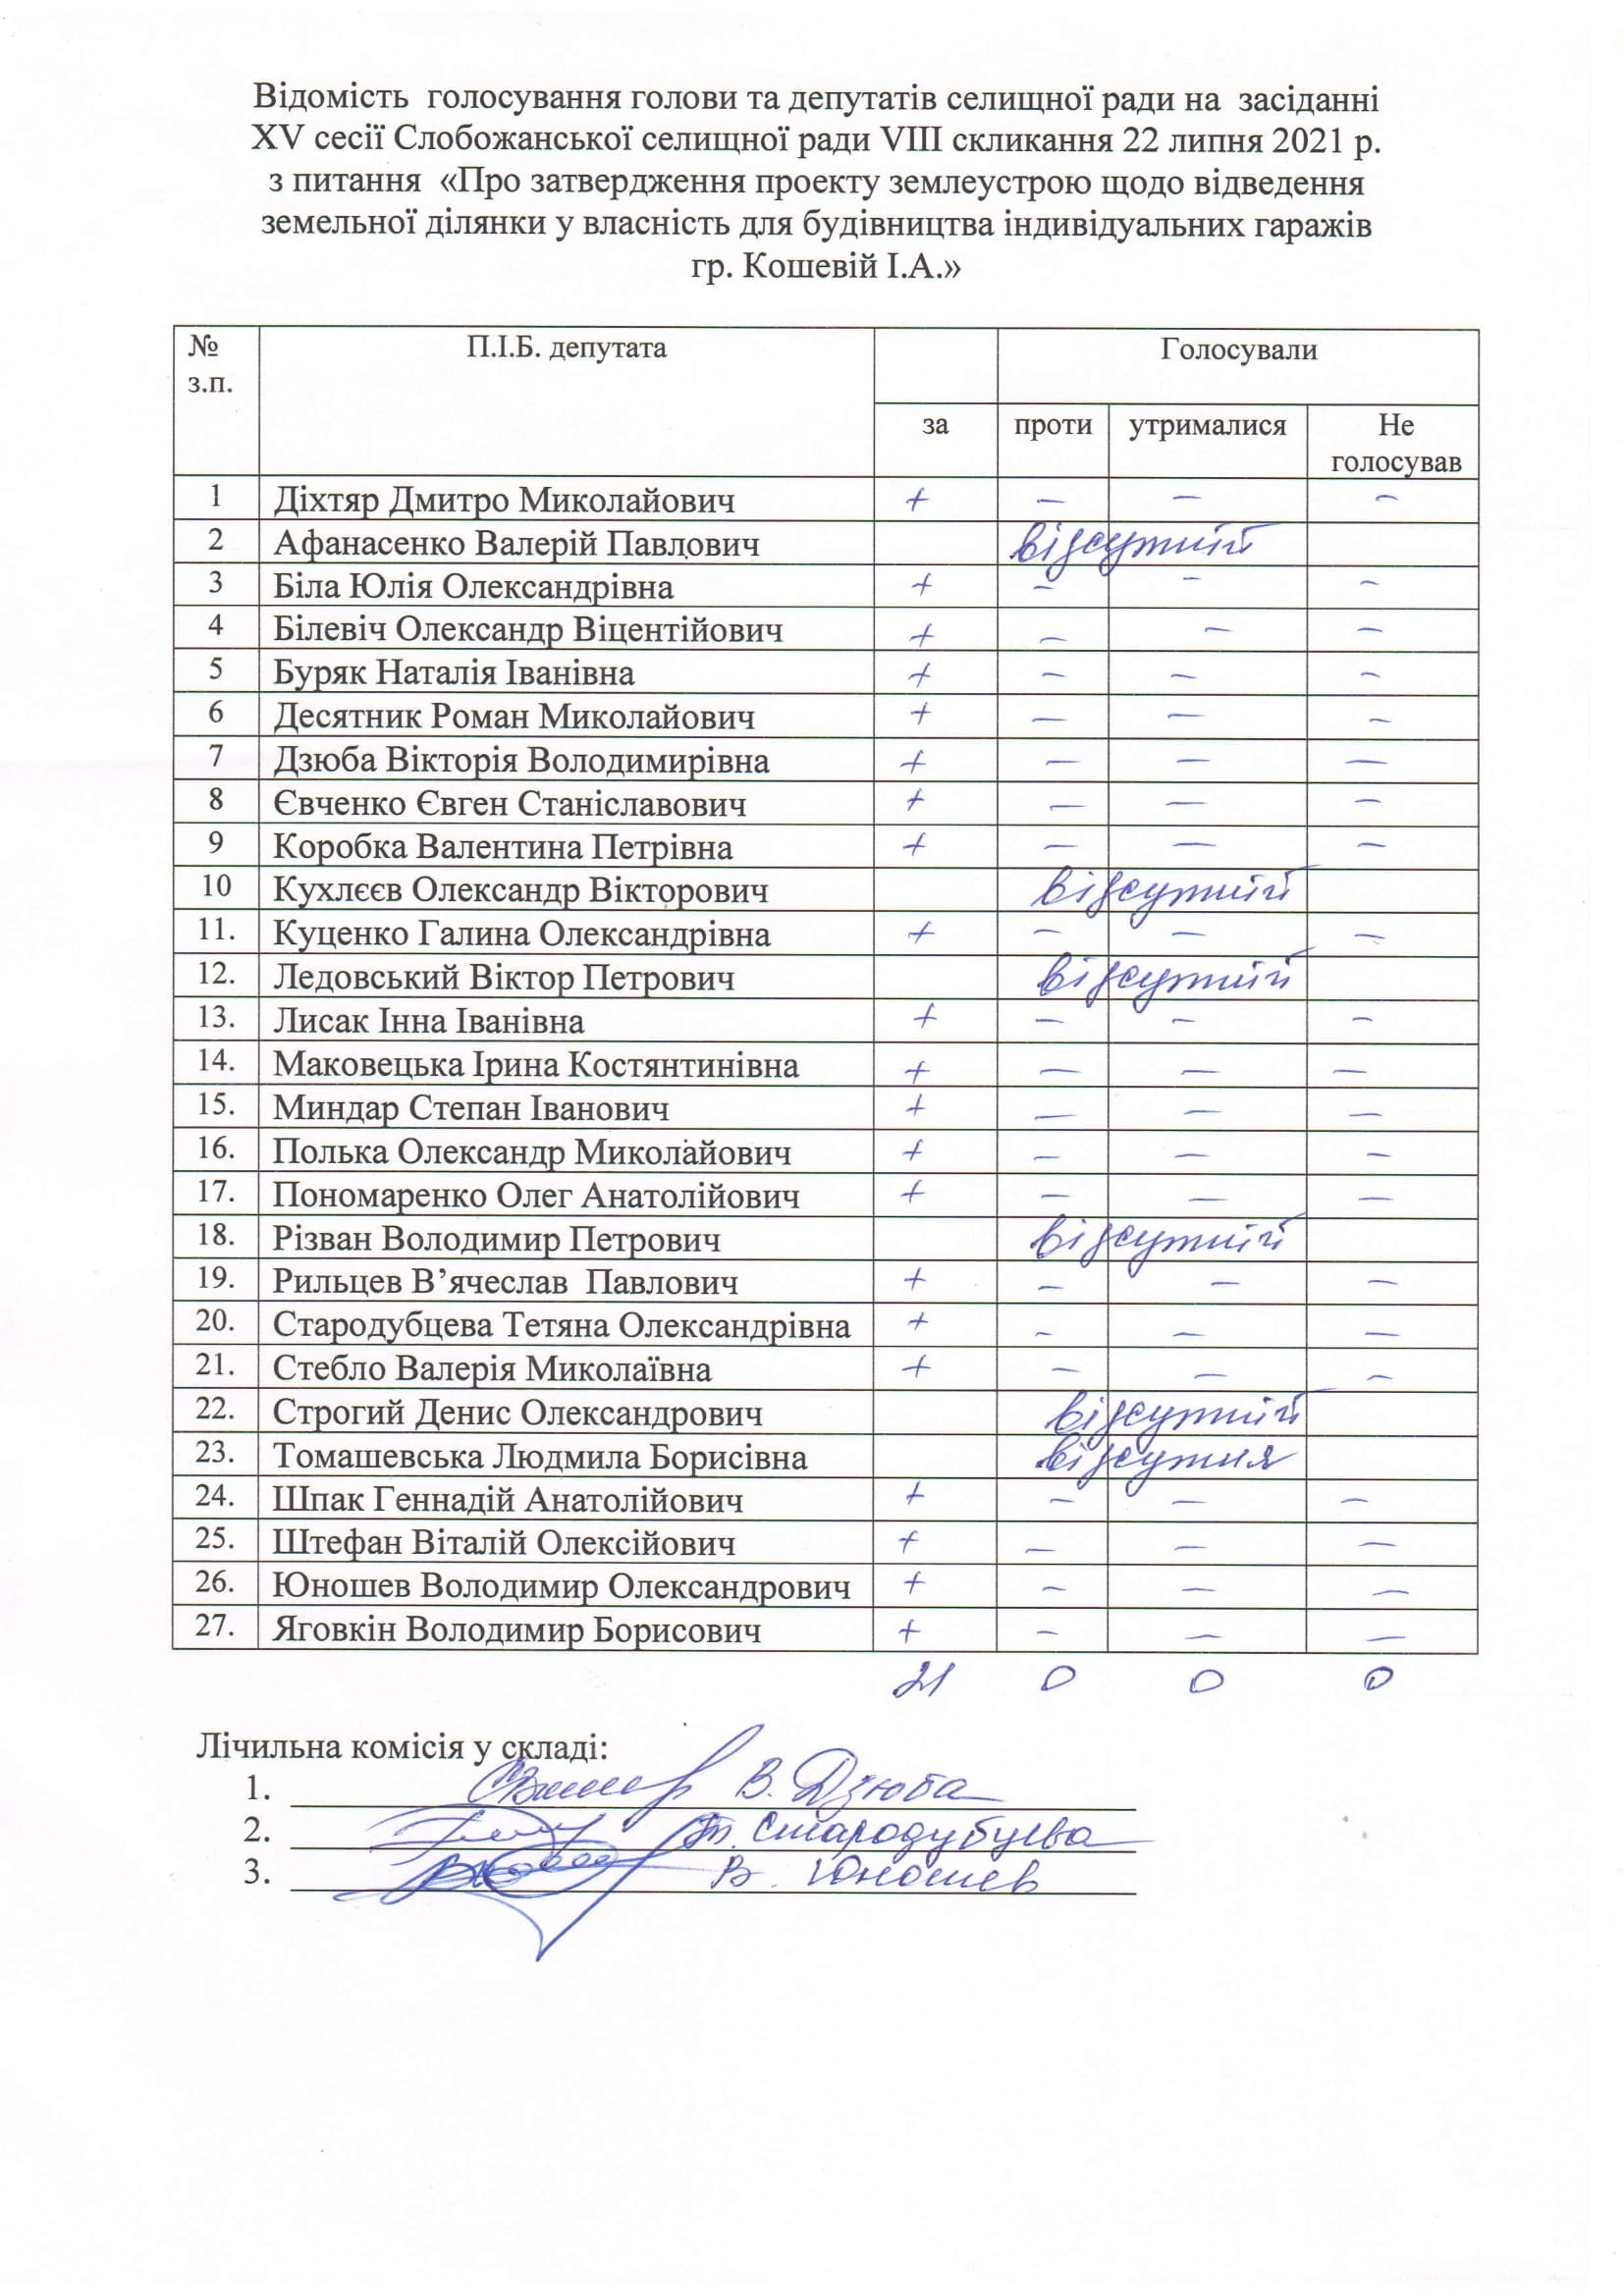 Відомість голосування голови та депутатів селищної ради на засіданні
XV сесії Слобожанської селищної ради VIII скликання 22 липня 2021 р.
з питання «Про затвердження проекту землеустрою щодо відведення
земельної ділянки у власність для будівництва індивідуальних гаражів
гр. Кошевій І.А.»
№ з.п. П.І.Б. депутата Голосували
за проти утрималися Не голосував
1 Діхтяр Дмитро Миколайович + – – –
2 Афанасенко Валерій Павлович відсутній
3 Біла Юлія Олександрівна + – – –
4 Білевіч Олександр Віцентійович + – – –
5 Буряк Наталія Іванівна + – – –
6 Десятник Роман Миколайович + – – –
7 Дзюба Вікторія Володимирівна + – – –
8 Євченко Євген Станіславович + – – –
9 Коробка Валентина Петрівна + – – –
10 Кухлєєв Олександр Вікторович відсутній
11. Куценко Галина Олександрівна + – – –
12. Ледовський Віктор Петрович відсутній
13. Лисак Інна Іванівна + – – –
14. Маковецька Ірина Костянтинівна + – – –
15. Миндар Степан Іванович + – – –
16. Полька Олександр Миколайович + – – –
17. Пономаренко Олег Анатолійович + – – –
18. Різван Володимир Петрович відсутній
19. Рильцев В’ячеслав Павлович + – – –
20. Стародубцева Тетяна Олександрівна + – – –
21. Стебло Валерія Миколаївна + – – –
22. Строгий Денис Олександрович відсутній
23. Томашевська Людмила Борисівна відсутня
24. Шпак Геннадій Анатолійович + – – –
25. Штефан Віталій Олексійович + – – –
26. Юношев Володимир Олександрович + – – –
27. Яговкін Володимир Борисович + – – –
21 0 0 0
Лічильна комісія у складі:
1. В. Дзюба
2. Т. Стародубцева
3. В. Юношев